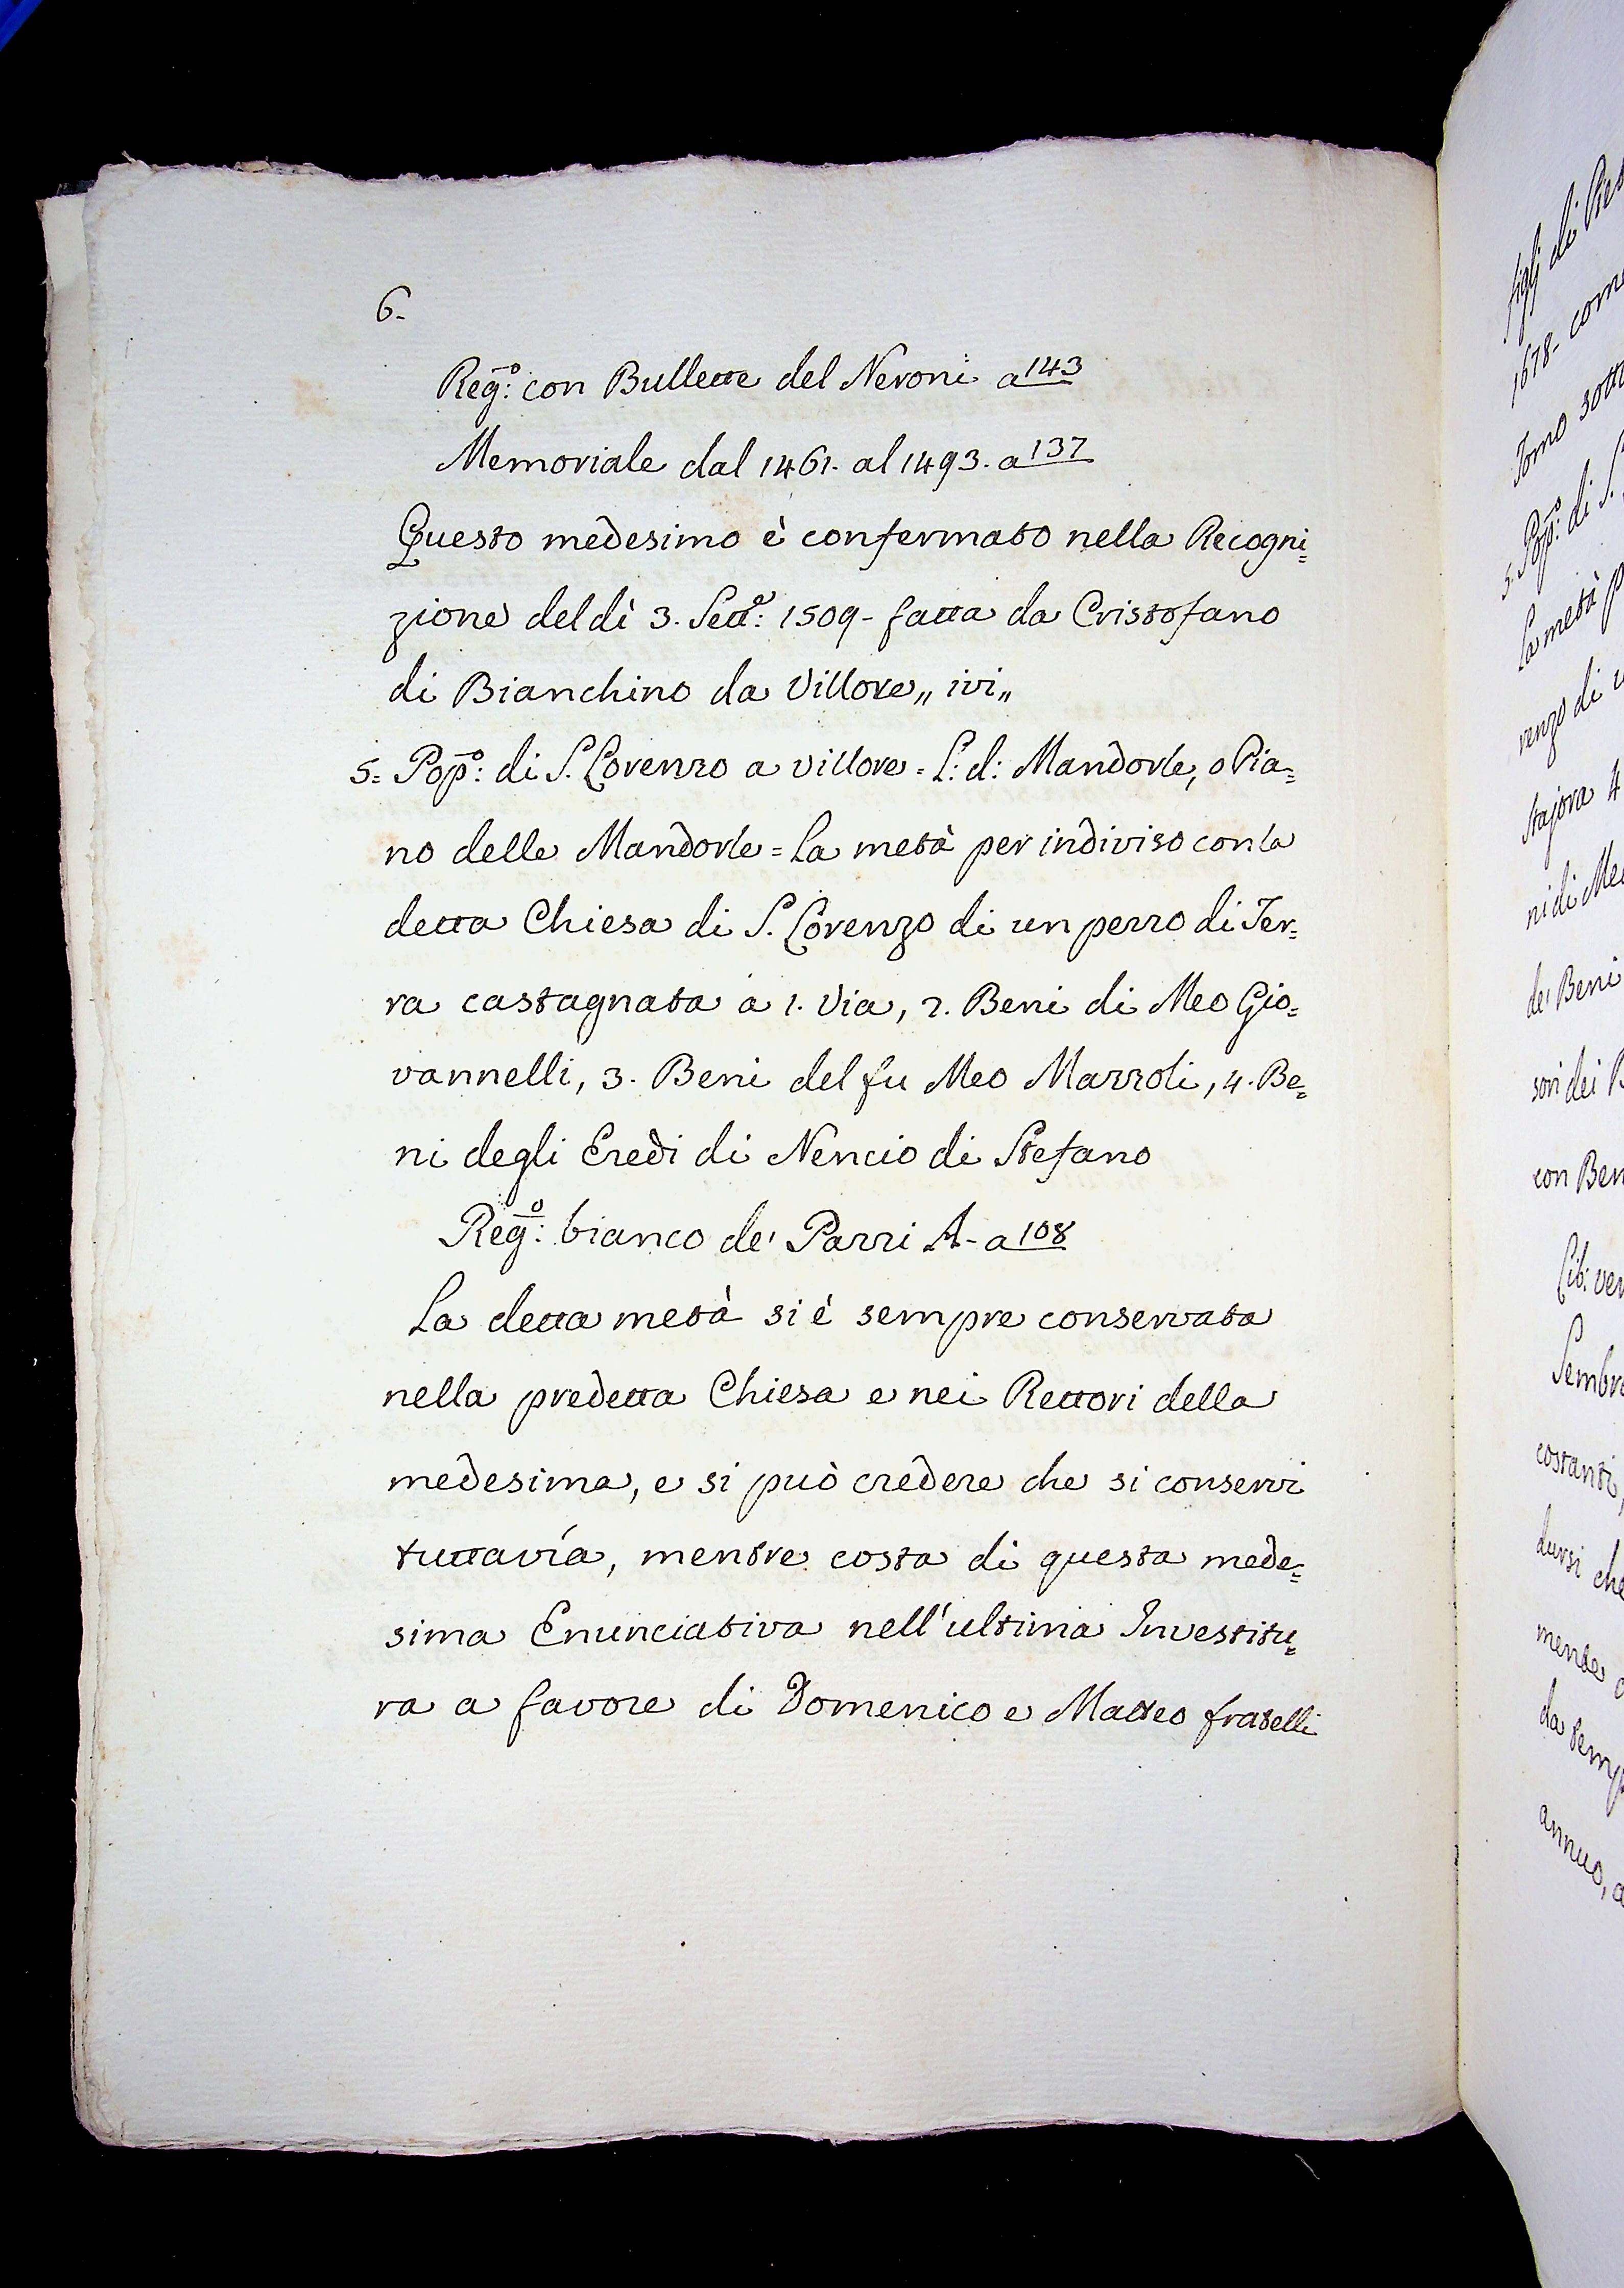 6.
Reg.º: con Bullette del Neroni a 143
Memoriale dal 1461. al 1493. a 137
Questo medesimo è confermato nella Recogni=
zione del dì 3. Sett.º: 1509- fatta da Cristofano
di Bianchino da Villore„ ivi„
5= Pop.º: di S. Lorenzo a Villore = L: d: Mandorle, o Pia=
no delle Mandorle = La metà per indiviso con la
detta Chiesa di S. Lorenzo di un pezzo di Ter=
ra castagnata a 1. Via, 2. Beni di Meo Gio=
vannelli, 3. Beni del fu Meo Mazzoli, 4. Be=
ni degli Eredi di Nencio di Stefano
Reg.º: bianco de' Pazzi A- a 108
La detta metà si è sempre conservata
nella predetta Chiesa e nei Rettori della
medesima, e si può credere che si conservi
tuttavía, mentre costa di questa mede=
sima Enunciativa nell'ultima Investitu=
ra a favore di Domenico e Matteo fratelli
figlj di
1678- com
Torno sotto
5. Pop.º: di S.
La metà
renzo di
Stajora 4
ni di Me
de' Beni
sori dei
con Ben
Lib: ver
Sembr
costanti,
dursi che
mente
da temp
annuo,